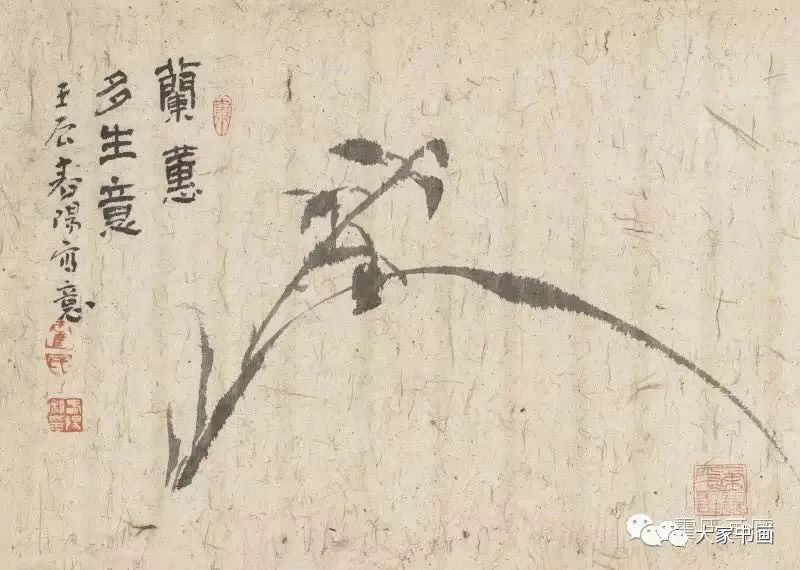 蘭蕙
多生意
壬辰春陽寫意
大家书画